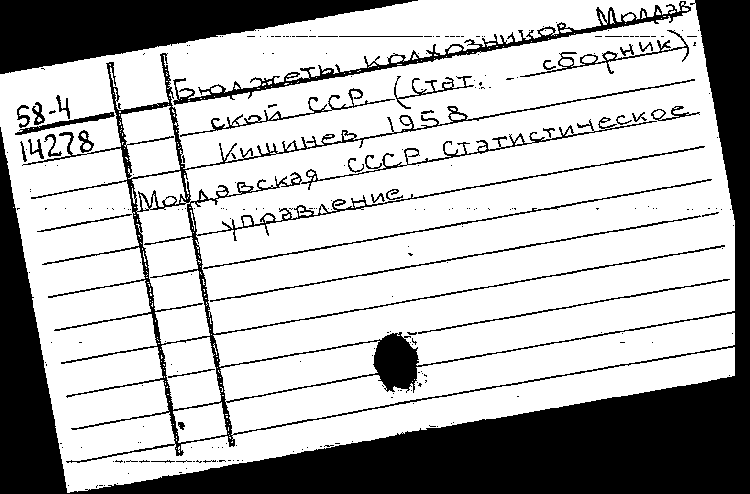 58-4
14278
Бюджеты колхозников Молдав-
ской ССР. (Стат. сборник).
Кишинев, 1958.
Молдавская СССР. Статистическое
управление.